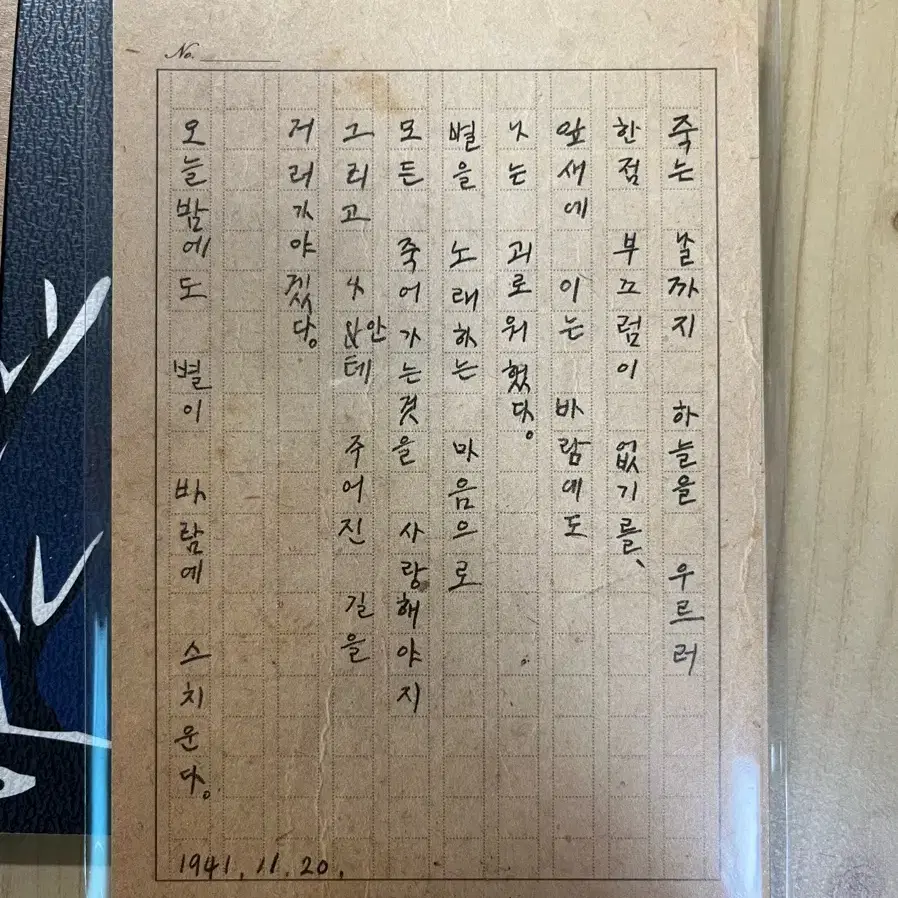 No.
죽는 날까지 하늘을 우르러
한점 부끄럼이 없기를、
잎새에 이는 바람에도
나는 괴로워했다。
별을 노래하는 마음으로
모든 죽어가는것을 사랑해야지
그리고 나안테 주어진 길을
거러가야겠다。
오늘밤에도 별이 바람에 스치운다。
1941. 11. 20.